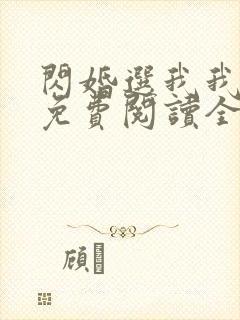 閃婚選我我
免費閱讀全
顧